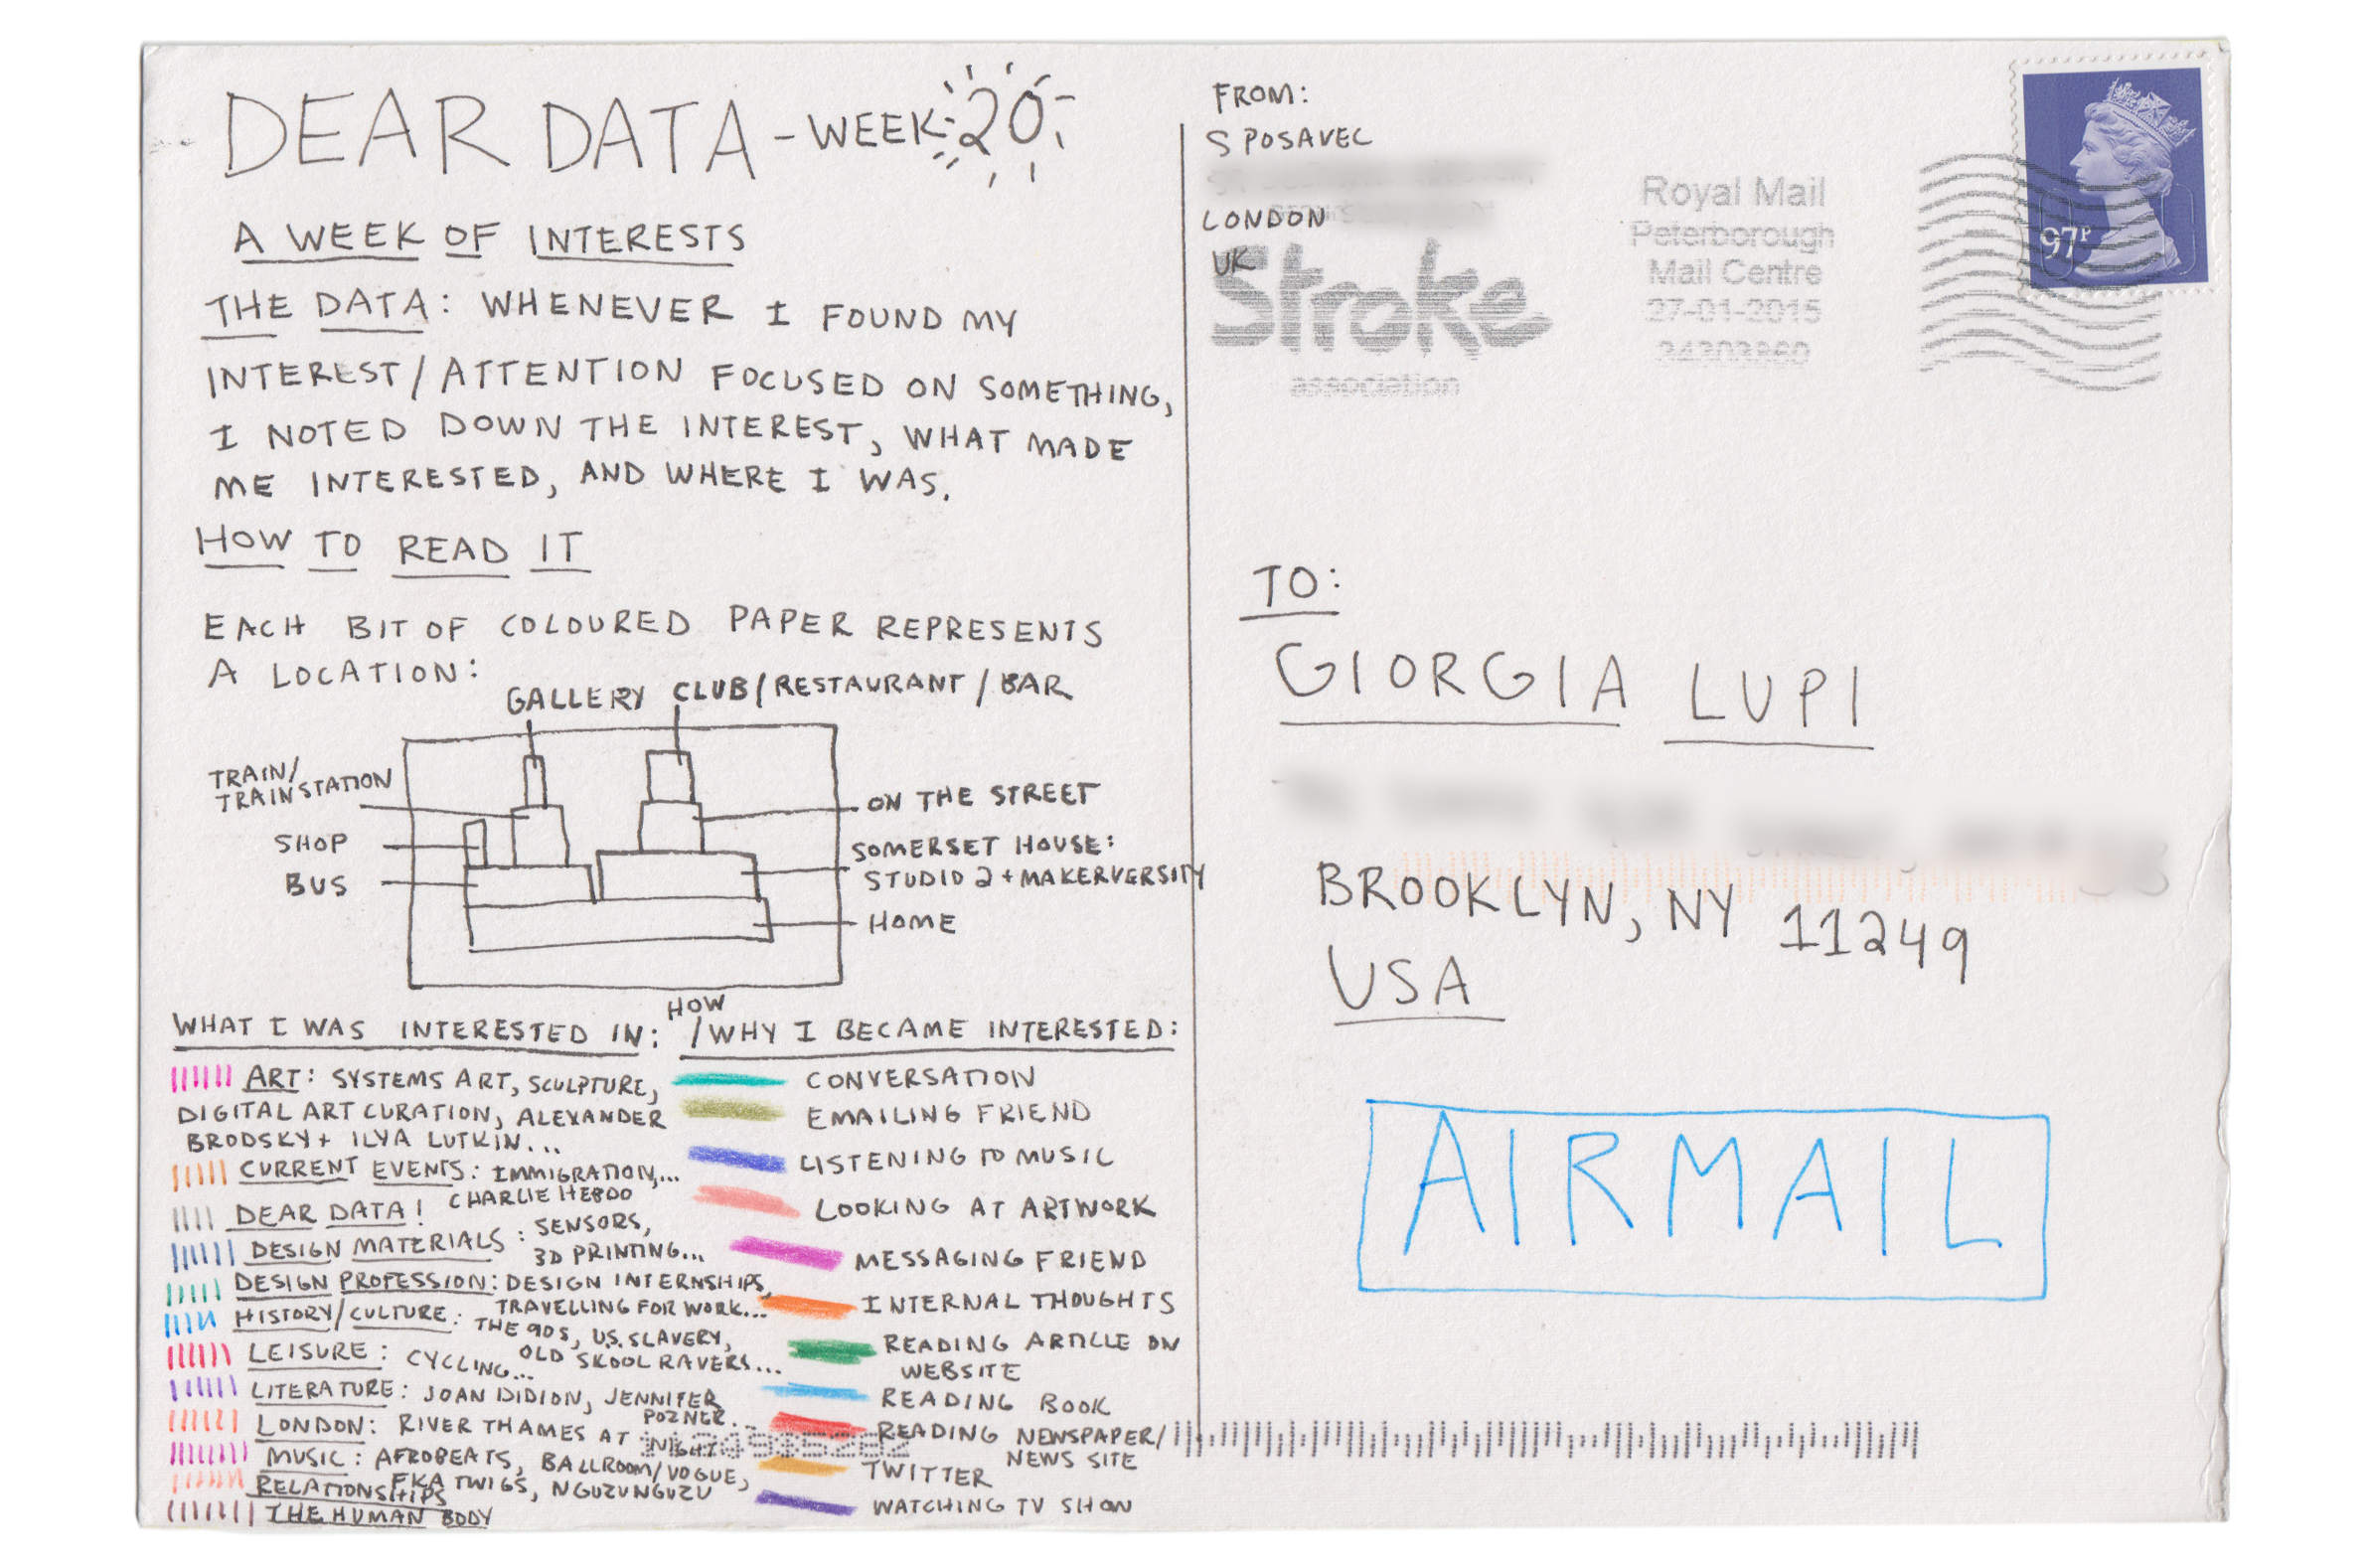 DEAR DATA - WEEK: 20
A WEEK OF INTERESTS
THE DATA: WHENEVER I FOUND MY
INTEREST/ATTENTION FOCUSED ON SOMETHING,
I NOTED DOWN THE INTEREST, WHAT MADE
ME INTERESTED, AND WHERE I WAS.
HOW TO READ IT
EACH BIT OF COLOURED PAPER REPRESENTS
A LOCATION:
GALLERY
CLUB/RESTAURANT/BAR
TRAIN/
TRAINSTATION
SHOP
BUS
ON THE STREET
SOMERSET HOUSE:
STUDIO 2 + MAKERVERSITY
HOME
WHAT I WAS INTERESTED IN:
ART: SYSTEMS ART, SCULPTURE,
DIGITAL ART CURATION, ALEXANDER
BRODSKY + ILYA LUTKIN...
CURRENT EVENTS: IMMIGRATION,...
CHARLIE HEBDO
DEAR DATA!
DESIGN MATERIALS: SENSORS,
3D PRINTING...
DESIGN PROFESSION: DESIGN INTERNSHIPS,
TRAVELLING FOR WORK...
HISTORY/CULTURE: THE 90S, U.S. SLAVERY,
OLD SKOOL RAVERS...
LEISURE: CYCLING...
LITERATURE: JOAN DIDION, JENNIFER
POZNER...
LONDON: RIVER THAMES AT
NIGHT
MUSIC: AFROBEATS, BALLROOM/VOGUE,
FKA TWIGS, NGUZUNGUZU
RELATIONSHIPS
THE HUMAN BODY
HOW
/WHY I BECAME INTERESTED:
CONVERSATION
EMAILING FRIEND
LISTENING TO MUSIC
LOOKING AT ARTWORK
MESSAGING FRIEND
INTERNAL THOUGHTS
READING ARTICLE ON
WEBSITE
READING BOOK
READING NEWSPAPER/
NEWS SITE
TWITTER
WATCHING TV SHOW
FROM:
S POSAVEC
LONDON
UK
Stroke
association
Royal Mail
Peterborough
Mail Centre
27-01-2015
34303860
97P
TO:
GIORGIA LUPI
BROOKLYN, NY 11249
USA
AIRMAIL